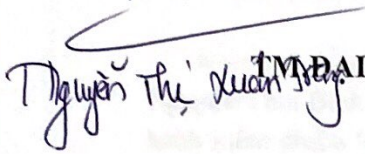 Nguyễn Thị Xuân
TM ĐẠI